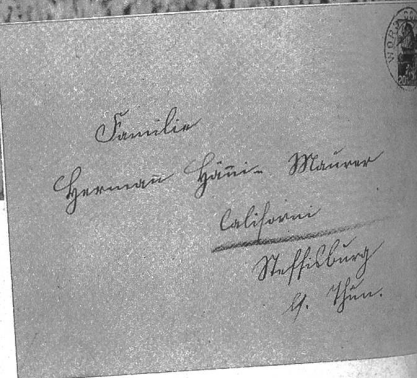 Familie
Herman Häni- Maurer
Californi
Steffisburg
b. Thun.